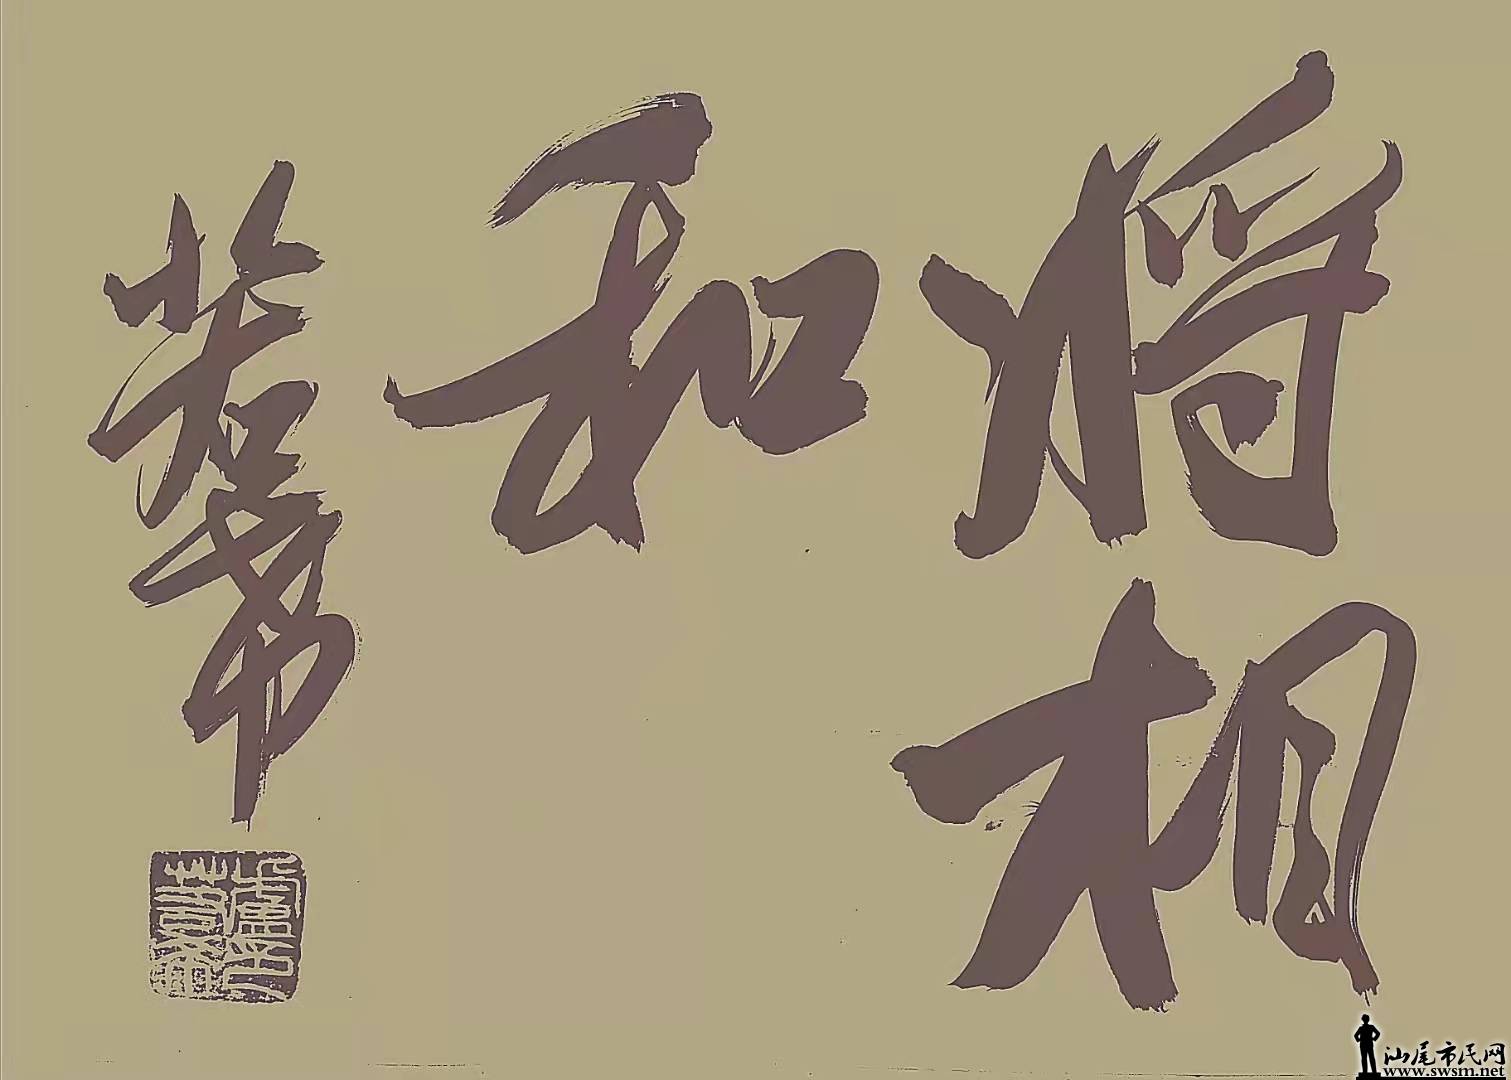 将相
和
若希
汕尾市民网
www.swsm.net